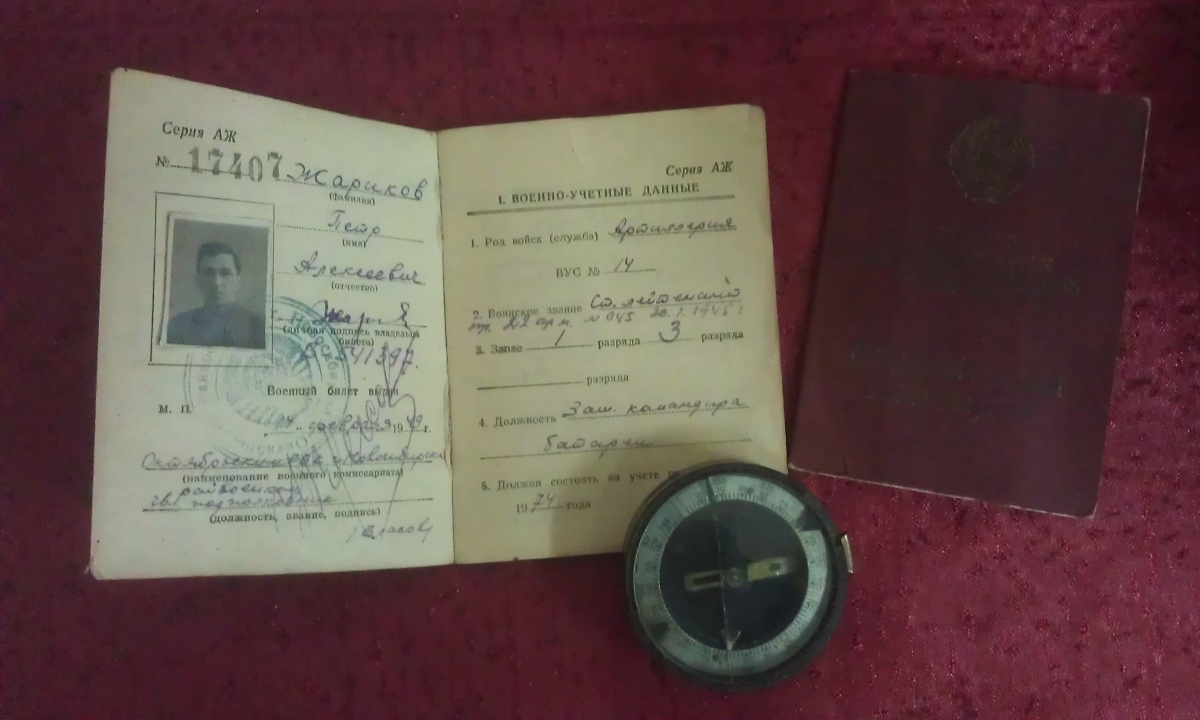 Серия АЖ
№ 17407
Жариков
(фамилия)
Петр
(имя)
Алексеевич
(отчество)
(личная подпись владельца
билета)
541397
Военный билет выдан
М. П.
февраля 1949 г.
Октябрьским г. Новосибирска
(наименование военного комиссариата)
гв. подполковник
(должность, звание, подпись)
/Власов/
Серия АЖ
I. ВОЕННО-УЧЕТНЫЕ ДАННЫЕ
1. Род войск (служба) Артиллерия
ВУС № 14
2. Воинское звание Ст. лейтенант
пр. 22 арм. № 045 20.1.1945 г
3. Запас 1 разряда 3 разряда
разряда
4. Должность Зам. командира
батареи
5. Должен состоять на учете
1974 года